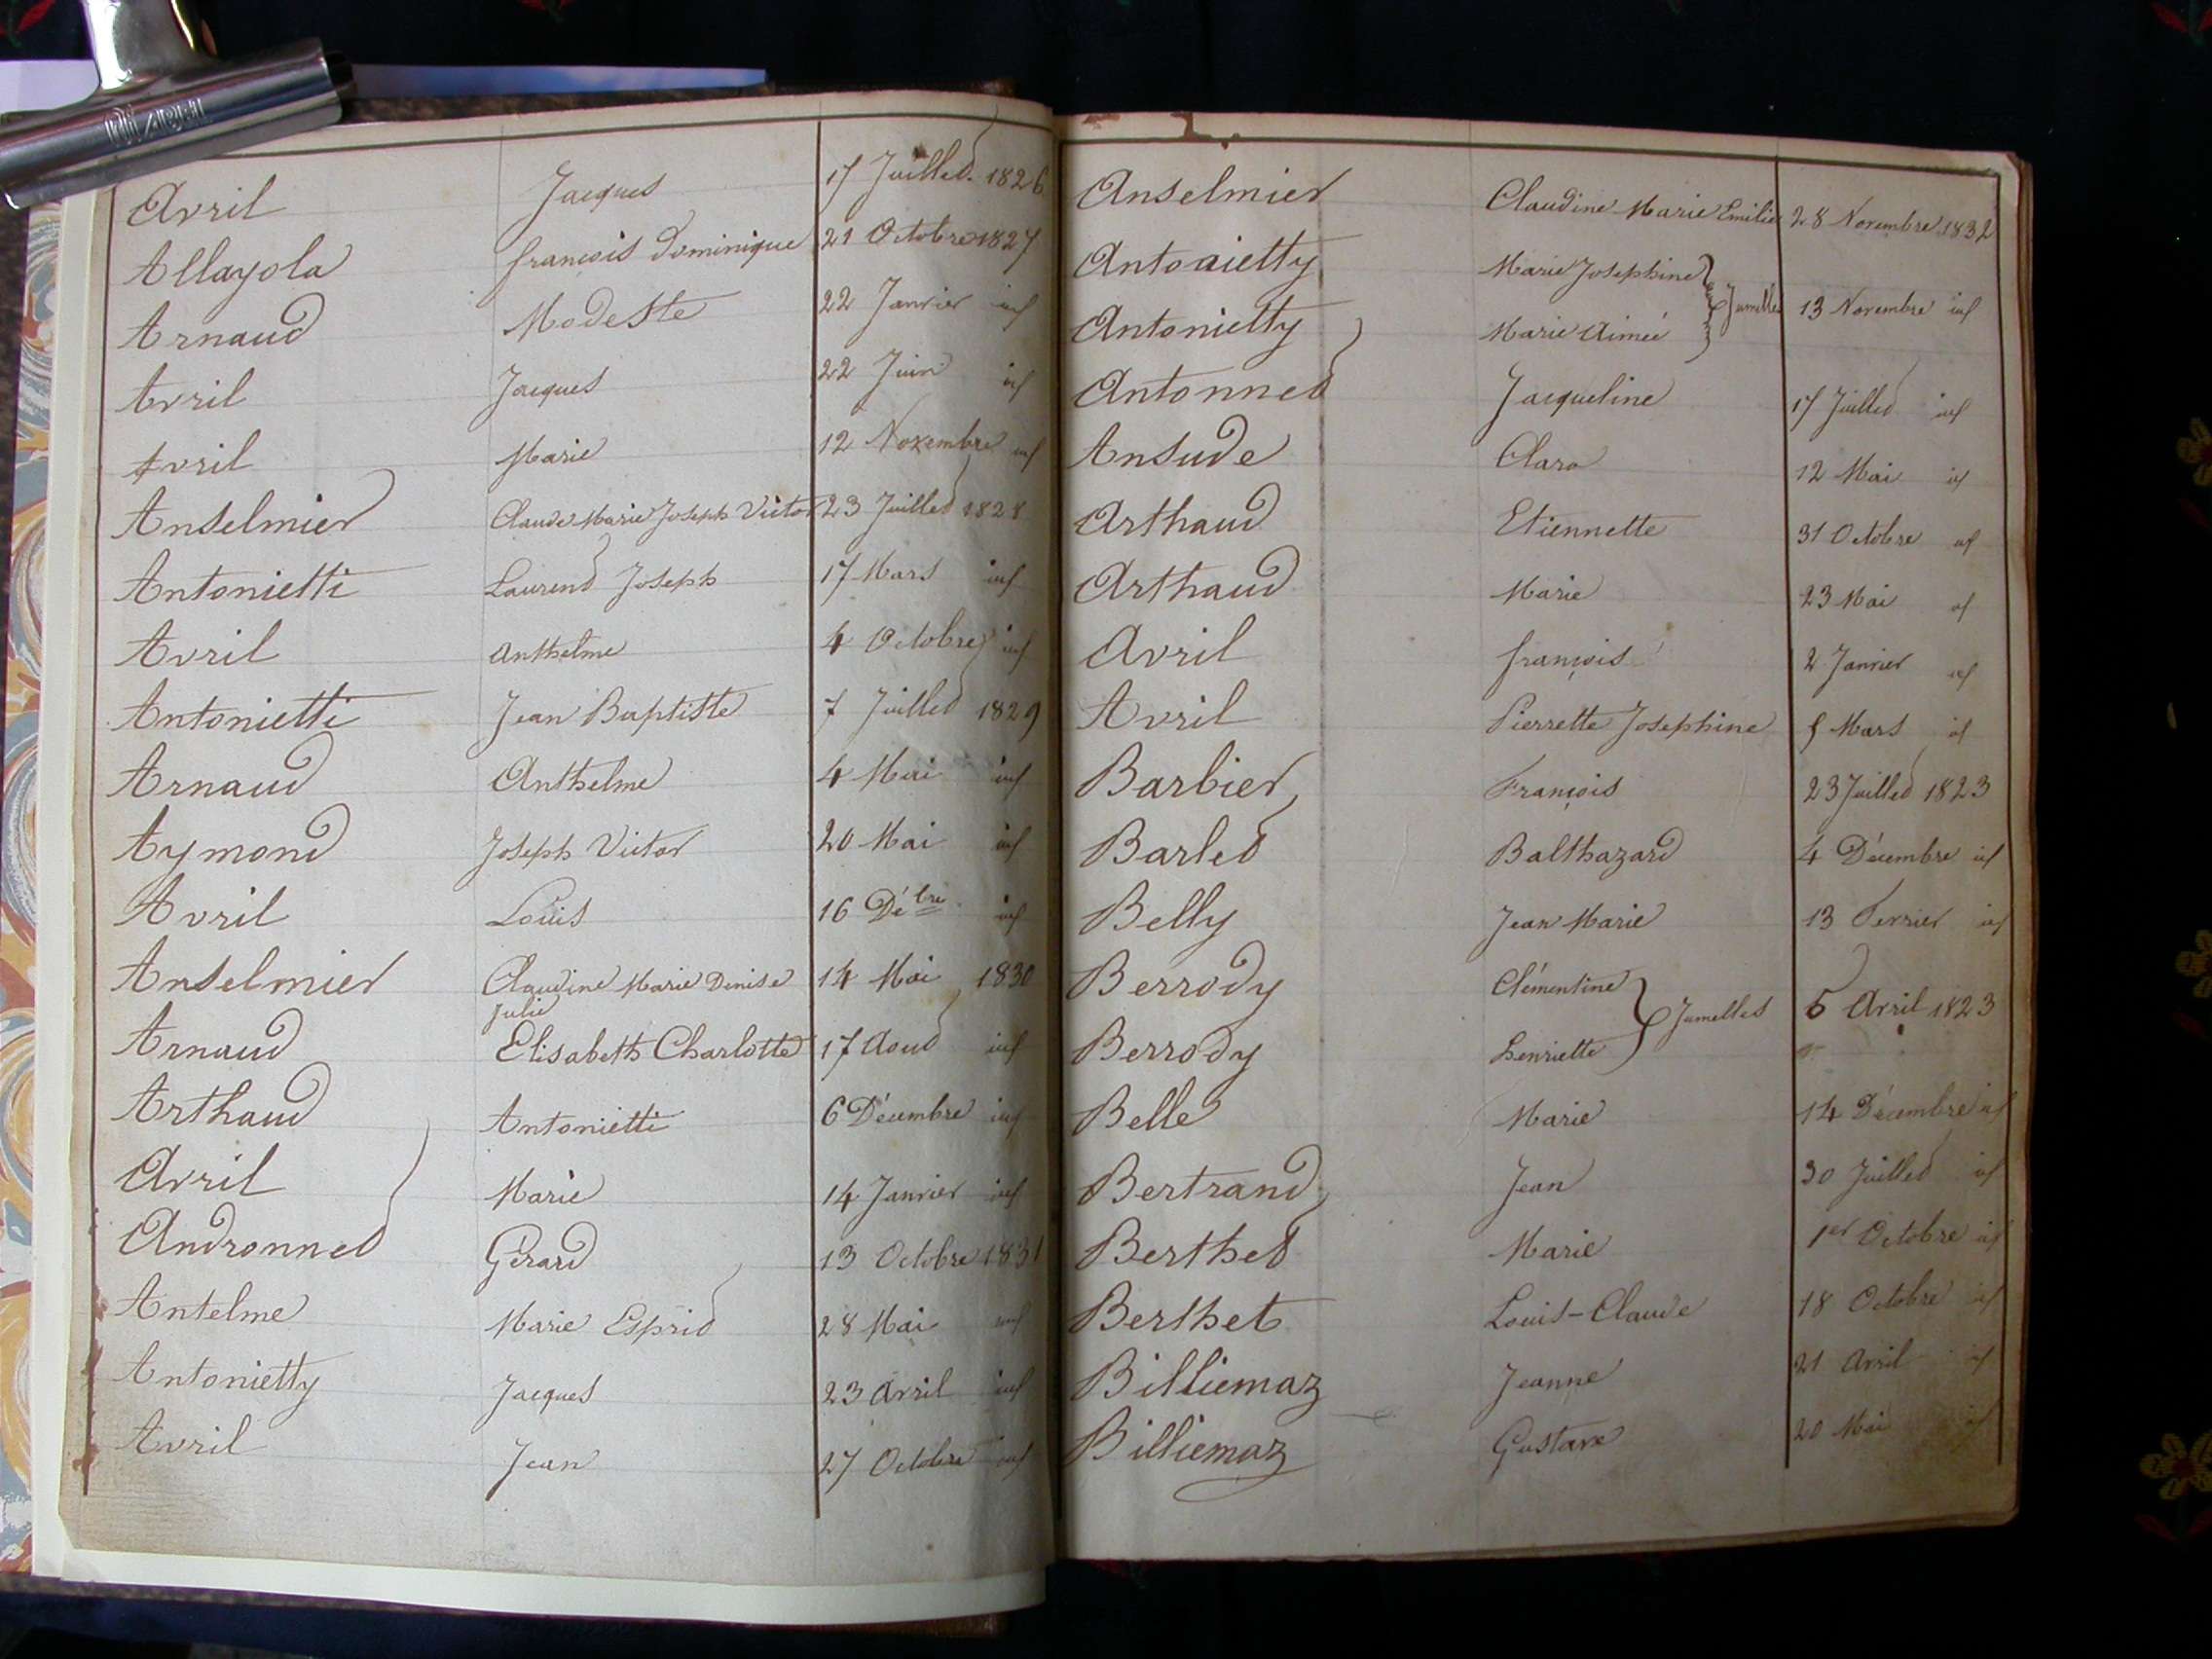 Avril Jacques 17 Juillet 1826
Allayola françois Dominique 21 Octobre 1827
Arnaud Modeste 22 Janvier id
Avril Jacques 22 Juin id
Avril Marie 12 Novembre id
Anselmier Claude Marie Joseph Victor 23 Juillet 1828
Antonietti Laurent Joseph 17 Mars id
Avril Anthelme 4 Octobre id
Antonietti Jean Baptiste 7 Juillet 1829
Arnaud Anthelme 4 Mai id
Aymond Joseph Victor 20 Mai id
Avril Louis 16 Dé bre id
Anselmier Claudine Marie Denise 14 Mai 1830
Julie
Arnaud Elisabeth Charlotte 17 Aout id
Arthaud Antonietti 6 Décembre id
Avril Marie 14 Janvier id
Andronnet Gérard 13 Octobre 1831
Antelme Marie Esprit 28 Mai id
Antonietty Jacques 23 Avril id
Avril Jean 27 Octobre id
Anselmier Claudine Marie Emilie 28 Novembre 1832
Antonietty Marie Josephine
Jumelles 13 Novembre id
Antonietty Marie Aimée
Antonnet Jacqueline 17 Juillet id
Ansude Clara 12 Mai id
Arthaud Etiennette 31 Octobre id
Arthaud Marie 23 Mai id
Avril françois 2 Janvier id
Avril Pierrette Josephine Mars id
Barbier François 23 Juillet 1823
Barlet Balthazard 4 Décembre id
Belly Jean Marie 13 Fevrier id
Berrody Clémentine
Jumelles 5 Avril 1823
Berrody henriette
Belle Marie 14 Décembre id
Bertrand Jean 30 Juillet id
Berthet Marie 1er Octobre id
Berthet Louis-Claude 18 Octobre id
Billiemaz Jeanne 21 Avril id
Billiemaz Gustave 20 Mai id